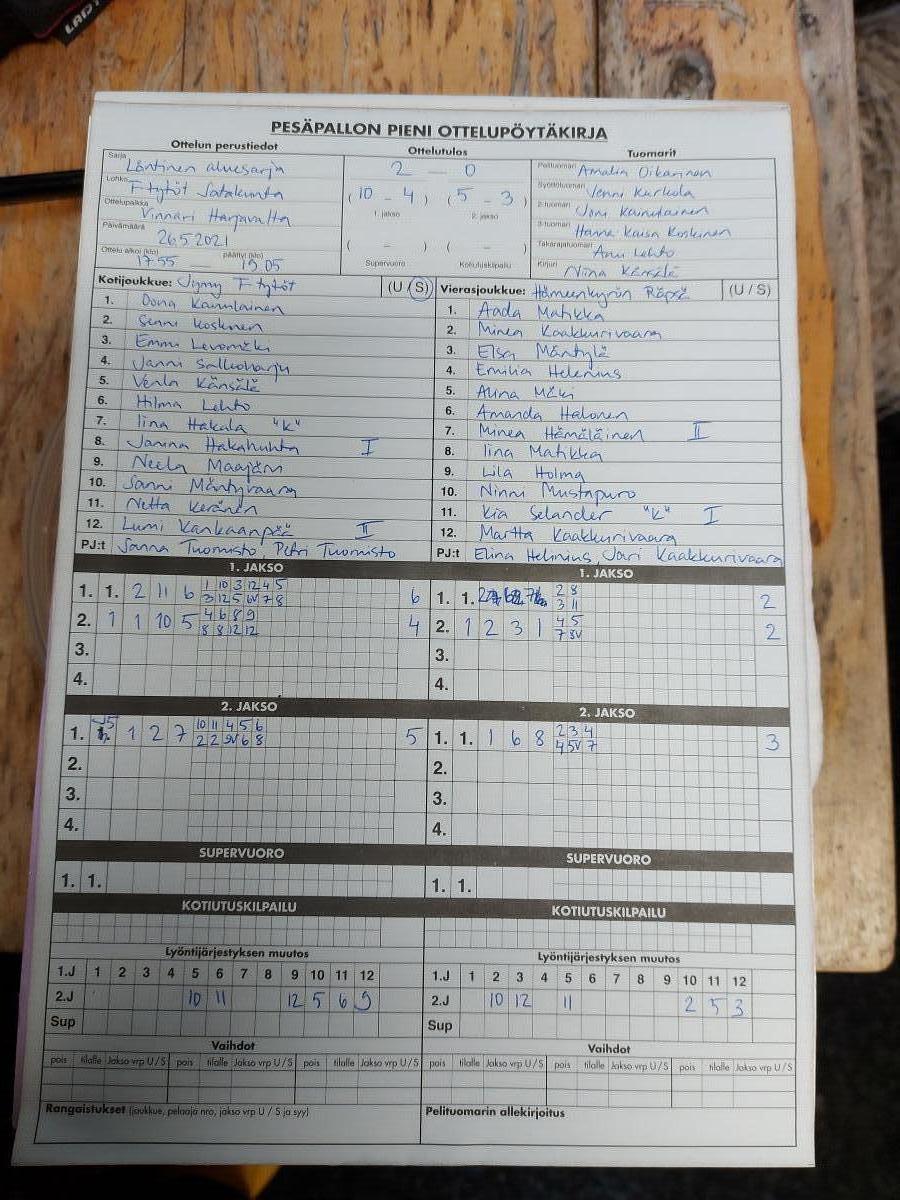 PESÄPALLON PIENI OTTELUPÖYTÄKIRJA
Ottelun perustiedot
Sarja Läntinen aluesarja
Lohko F tytöt Satakunta
Ottelupaikka Vinnari Harjavalta
Päivämäärä 26.5 2021
Ottelu alkoi (klo) 17.55 päättyi (klo) 19.05
Ottelutulos
2 — 0
(10 - 4) (5 - 3)
1. jakso 2. jakso
( - ) ( - )
Supervuoro Kotiutuskilpailu
Tuomarit
Pelituomari Amalia Oikarinen
Syöttötuomari Jenni Kurkela
2-tuomari Joni Kainulainen
3-tuomari Hanna Kaisa Koskinen
Takarajatuomari Anu Lehto
Kirjuri Niina Känsälä
Kotijoukkue: Jymy F tytöt (U / S)
1. Oona Kainulainen
2. Senni Koskinen
3. Emmi Levomäki
4. Janni Salkoharju
5. Venla Känsälä
6. Hilma Lehto
7. Iina Hakala "K"
8. Janina Hakahuhta I
9. Neela Maajärvi
10. Sanni Mäntyvaara
11. Netta Keränen
12. Lumi Kankaanpää II
PJ:t Sanna Tuomisto, Petri Tuomisto
Vierasjoukkue: Hämeenkyrön Räpsä (U / S)
1. Aada Matikka
2. Minea Kaakkurivaara
3. Elsa Mäntylä
4. Emilia Helenius
5. Alina Mäki
6. Amanda Halonen
7. Minea Hämäläinen II
8. Iina Matikka
9. Lila Holma
10. Ninni Mustapuro
11. Kia Selander "K" I
12. Martta Kaakkurivaara
PJ:t Elina Helenius, Jari Kaakkurivaara
1. JAKSO
1. 1. 2 11 6 1 10 3 12 4 5 6
3 12 5 6V 7 8
2. 1 1 10 5 4 6 8 9 4
8 8 12 12
3.
4.
1. JAKSO
1. 1. 2 8 2
3 11
2. 1 2 3 1 4 5 2
7 8V
3.
4.
2. JAKSO
1. 1 2 7 10 11 4 5 6 5
2 2 9V 6 8
2.
3.
4.
2. JAKSO
1. 1. 1 6 8 2 3 4 3
4 5V 7
2.
3.
4.
SUPERVUORO
1. 1.
SUPERVUORO
1. 1.
KOTIUTUSKILPAILU
KOTIUTUSKILPAILU
Lyöntijärjestyksen muutos
1.J 1 2 3 4 5 6 7 8 9 10 11 12
2.J 10 11 12 5 6 9
Sup
Lyöntijärjestyksen muutos
1.J 1 2 3 4 5 6 7 8 9 10 11 12
2.J 10 12 11 2 5 3
Sup
Vaihdot
pois tilalle Jakso vrp U / S pois tilalle Jakso vrp U / S pois tilalle Jakso vrp U / S
Vaihdot
pois tilalle Jakso vrp U / S pois tilalle Jakso vrp U / S pois tilalle Jakso vrp U / S
Rangaistukset (joukkue, pelaaja nro, jakso vrp U / S ja syy)
Pelituomarin allekirjoitus